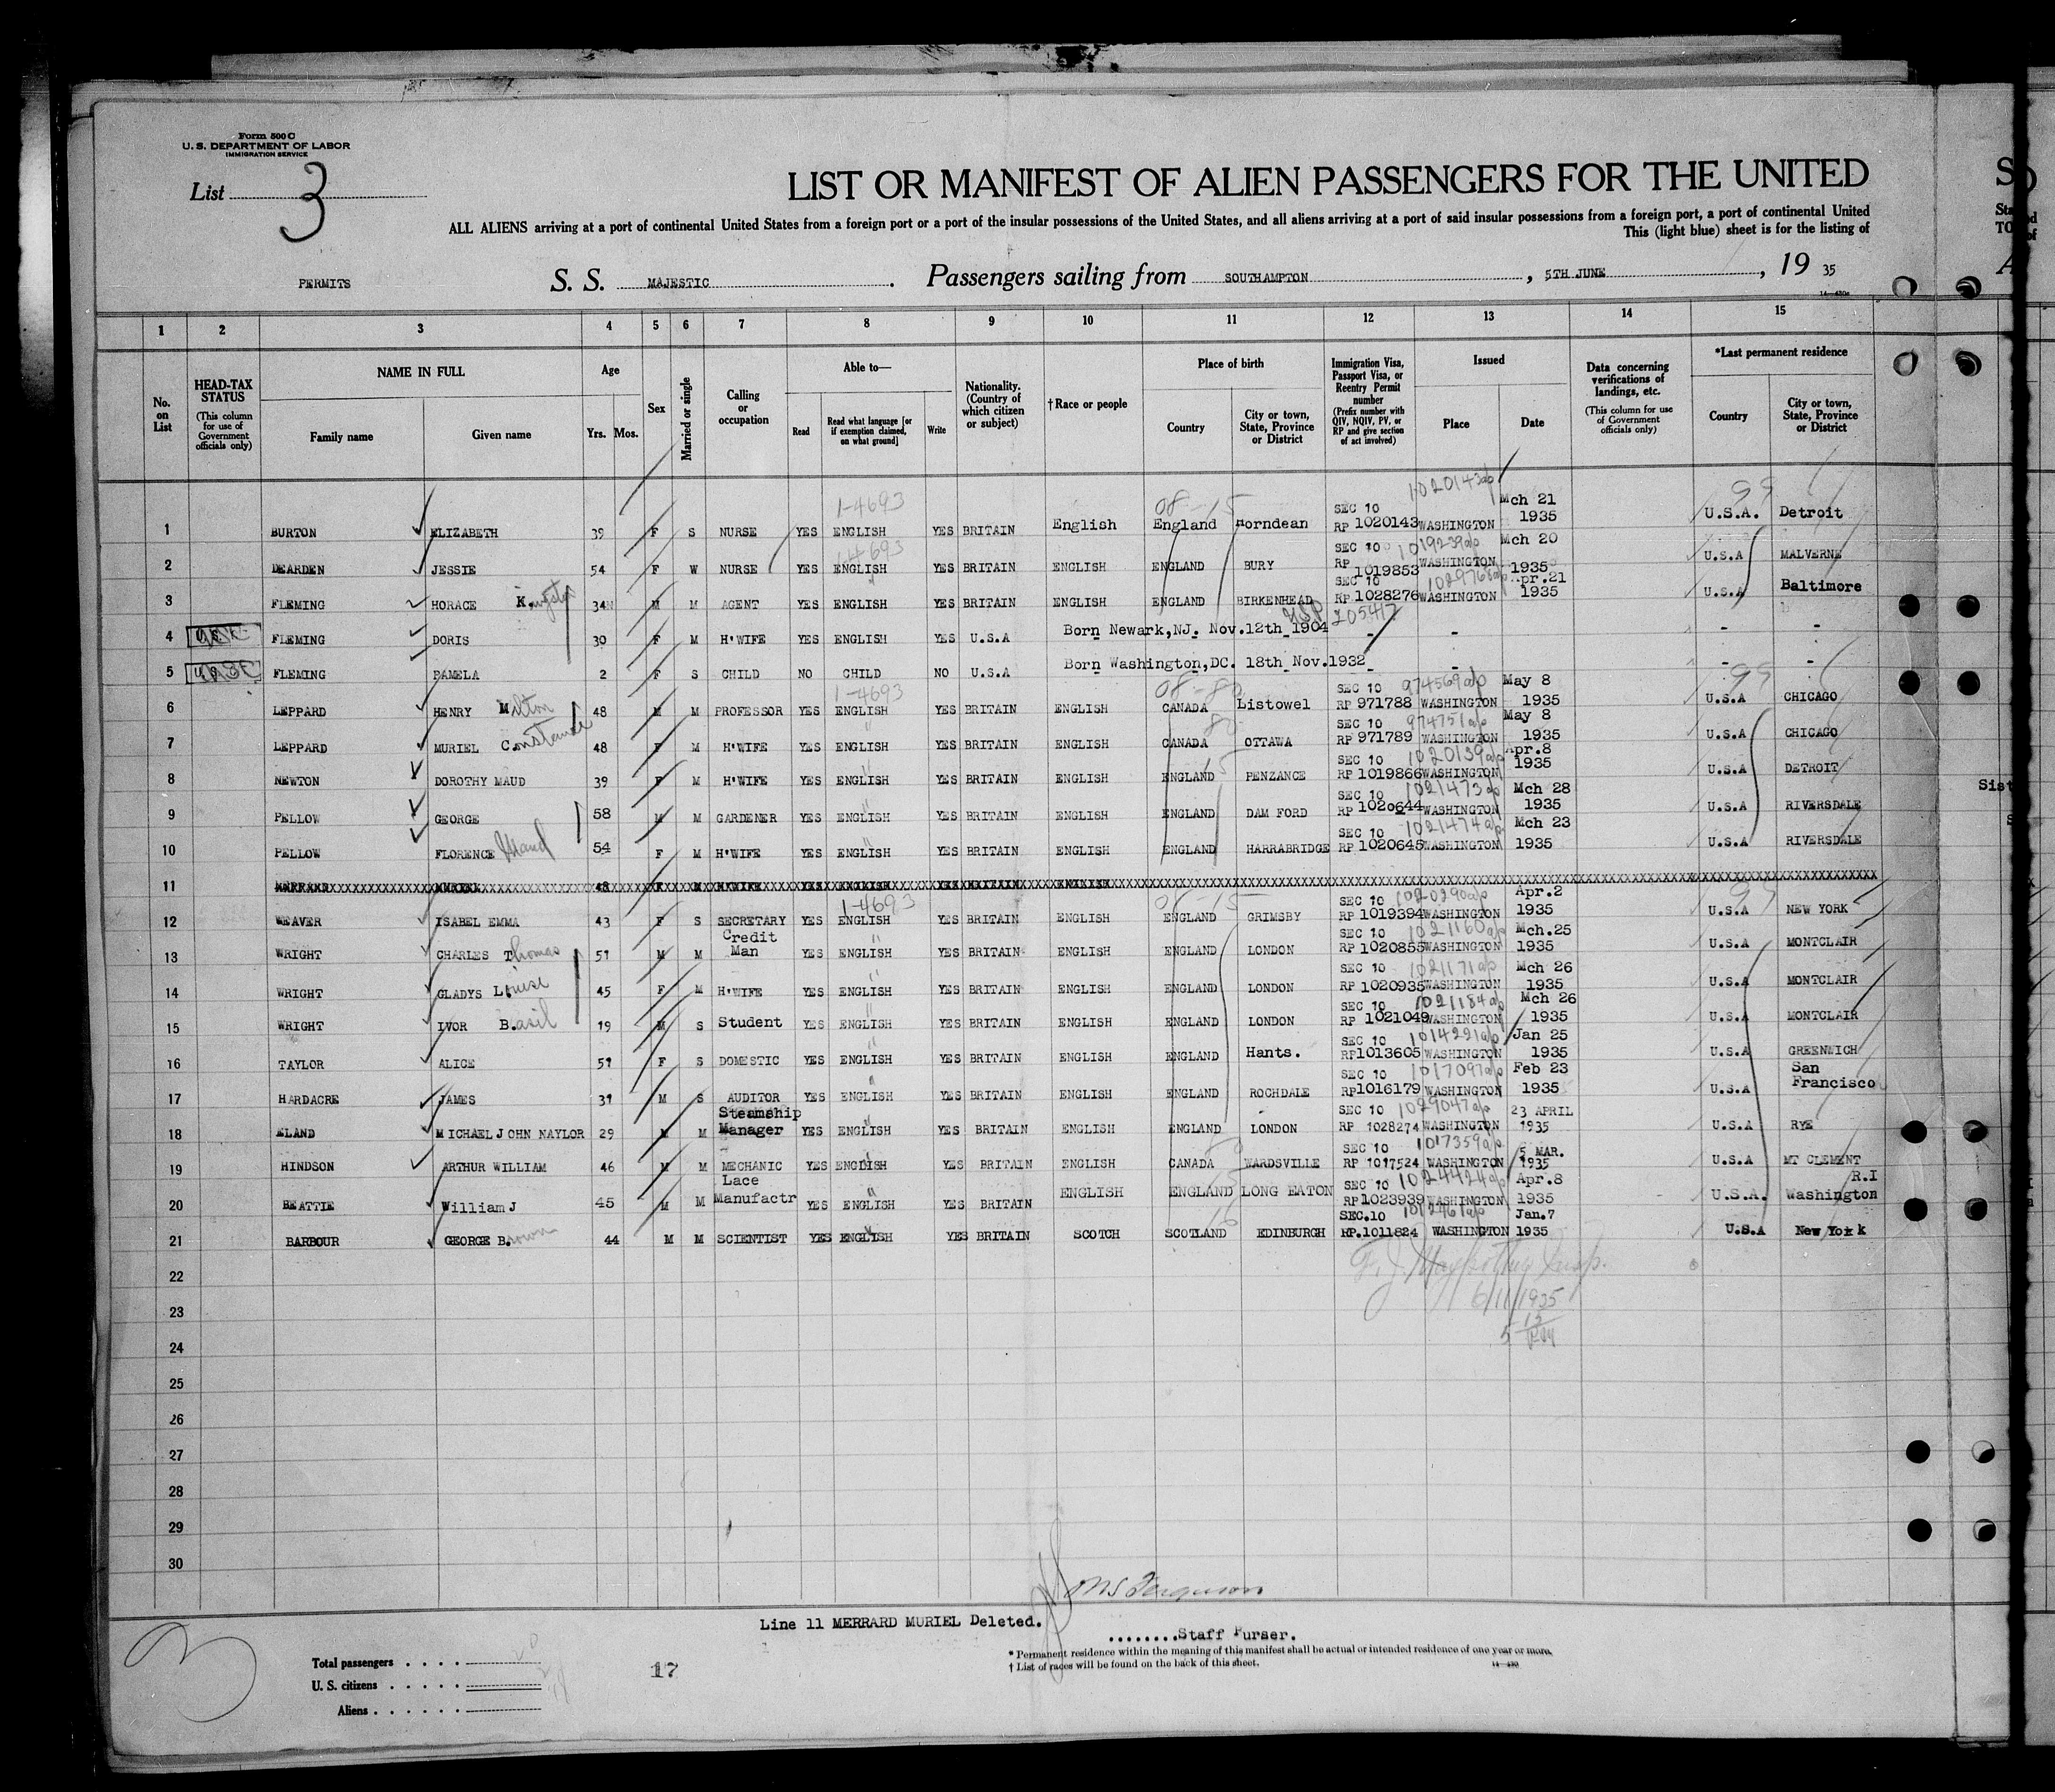 Form 500 C
U. S. DEPARTMENT OF LABOR
IMMIGRATION SERVICE
List 3
LIST OR MANIFEST OF ALIEN PASSENGERS FOR THE UNITED
ALL ALIENS arriving at a port of continental United States from a foreign port or a port of the insular possessions of the United States, and all aliens arriving at a port of said insular possessions from a foreign port, a port of continental United
This (light blue) sheet is for the listing of
PERMITS S. S. MAJESTIC. Passengers sailing from SOUTHAMPTON, 5TH JUNE, 19 35
1 2 3 4 5 6 7 8 9 10 11 12 13 14 15
No. on List
HEAD-TAX STATUS (This column for use of Government officials only)
NAME IN FULL Family name Given name
Age Yrs. Mos.
Sex
Married or single
Calling or occupation
Able to— Read Read what language [or if exemption claimed, on what ground] Write
Nationality. (Country of which citizen or subject)
†Race or people
Place of birth Country City or town, State, Province or District
Immigration Visa, Passport Visa, or Reentry Permit number (Prefix number with QIV, NQIV, PV, or RP and give section of act involved)
Issued Place Date
Data concerning verifications of landings, etc. (This column for use of Government officials only)
*Last permanent residence Country City or town, State, Province or District
1 BURTON ELIZABETH 39 F S NURSE YES ENGLISH YES BRITAIN English England Horndean SEC 10 RP 1020143 WASHINGTON Mch 21 1935 U.S.A. Detroit
2 DEARDEN JESSIE 54 F W NURSE YES ENGLISH YES BRITAIN ENGLISH ENGLAND BURY SEC 10 RP 1019853 WASHINGTON Mch 20 1935 U.S.A MALVERNE
3 FLEMING HORACE K. 34 M M AGENT YES ENGLISH YES BRITAIN ENGLISH ENGLAND BIRKENHEAD SEC 10 RP 1028276 WASHINGTON Apr.21 1935 U.S.A Baltimore
4 FLEMING DORIS 30 F M H'WIFE YES ENGLISH YES U.S.A Born Newark,NJ. Nov.12th 1904 USP 205417 - - - -
5 FLEMING PAMELA 2 F S CHILD NO CHILD NO U.S.A Born Washington,DC. 18th Nov.1932 - - - -
6 LEPPARD HENRY Milton 48 M M PROFESSOR YES ENGLISH YES BRITAIN ENGLISH CANADA Listowel SEC 10 RP 971788 WASHINGTON May 8 1935 U.S.A CHICAGO
7 LEPPARD MURIEL Constance 48 F M H'WIFE YES ENGLISH YES BRITAIN ENGLISH CANADA OTTAWA SEC 10 RP 971789 WASHINGTON May 8 1935 U.S.A CHICAGO
8 NEWTON DOROTHY MAUD 39 F M H'WIFE YES ENGLISH YES BRITAIN ENGLISH ENGLAND PENZANCE SEC 10 RP 1019866 WASHINGTON Apr.8 1935 U.S.A DETROIT
9 PELLOW GEORGE 58 M M GARDENER YES ENGLISH YES BRITAIN ENGLISH ENGLAND DAM FORD SEC 10 RP 1020644 WASHINGTON Mch 28 1935 U.S.A RIVERSDALE
10 PELLOW FLORENCE Maud 54 F M H'WIFE YES ENGLISH YES BRITAIN ENGLISH ENGLAND HARRABRIDGE SEC 10 RP 1020645 WASHINGTON Mch 23 1935 U.S.A RIVERSDALE
11
12 WEAVER ISABEL EMMA 43 F S SECRETARY YES ENGLISH YES BRITAIN ENGLISH ENGLAND GRIMSBY SEC 10 RP 1019394 WASHINGTON Apr.2 1935 U.S.A NEW YORK
13 WRIGHT CHARLES Thomas 51 M M Credit Man YES ENGLISH YES BRITAIN ENGLISH ENGLAND LONDON SEC 10 RP 1020855 WASHINGTON Mch.25 1935 U.S.A MONTCLAIR
14 WRIGHT GLADYS Louise 45 F M H'WIFE YES ENGLISH YES BRITAIN ENGLISH ENGLAND LONDON SEC 10 RP 1020935 WASHINGTON Mch 26 1935 U.S.A MONTCLAIR
15 WRIGHT IVOR Basil 19 M S Student YES ENGLISH YES BRITAIN ENGLISH ENGLAND LONDON SEC 10 RP 1021049 WASHINGTON Mch 26 1935 U.S.A MONTCLAIR
16 TAYLOR ALICE 51 F S DOMESTIC YES ENGLISH YES BRITAIN ENGLISH ENGLAND Hants. SEC 10 RP1013605 WASHINGTON Jan 25 1935 U.S.A GREENWICH
17 HARDACRE JAMES 31 M S AUDITOR YES ENGLISH YES BRITAIN ENGLISH ENGLAND ROCHDALE SEC 10 RP1016179 WASHINGTON Feb 23 1935 U.S.A San Francisco
18 ELAND MICHAEL JOHN NAYLOR 29 M M Steamship Manager YES ENGLISH YES BRITAIN ENGLISH ENGLAND LONDON SEC 10 RP 1028274 WASHINGTON 23 APRIL 1935 U.S.A RYE
19 HINDSON ARTHUR WILLIAM 46 M M MECHANIC YES ENGLISH YES BRITAIN ENGLISH CANADA WARDSVILLE SEC 10 RP 1017524 WASHINGTON 5 MAR. 1935 U.S.A MT CLEMENT
20 BEATTIE William J 45 M M Lace Manufactr YES ENGLISH YES BRITAIN ENGLISH ENGLAND LONG EATON SEC 10 RP1023939 WASHINGTON Apr.8 1935 U.S.A. R.I Washington
21 BARBOUR GEORGE Brown 44 M M SCIENTIST YES ENGLISH YES BRITAIN SCOTCH SCOTLAND EDINBURGH SEC.10 RP.1011824 WASHINGTON Jan.7 1935 U.S.A New York
22
23 6/11/1935
24
25
26
27
28
29
30
M S Ferguson
Line 11 MERRARD MURIEL Deleted.
........Staff Purser.
* Permanent residence within the meaning of this manifest shall be actual or intended residence of one year or more.
† List of races will be found on the back of this sheet.
Total passengers . . . .
U. S. citizens . . . . .
Aliens . . . . . .
17
3